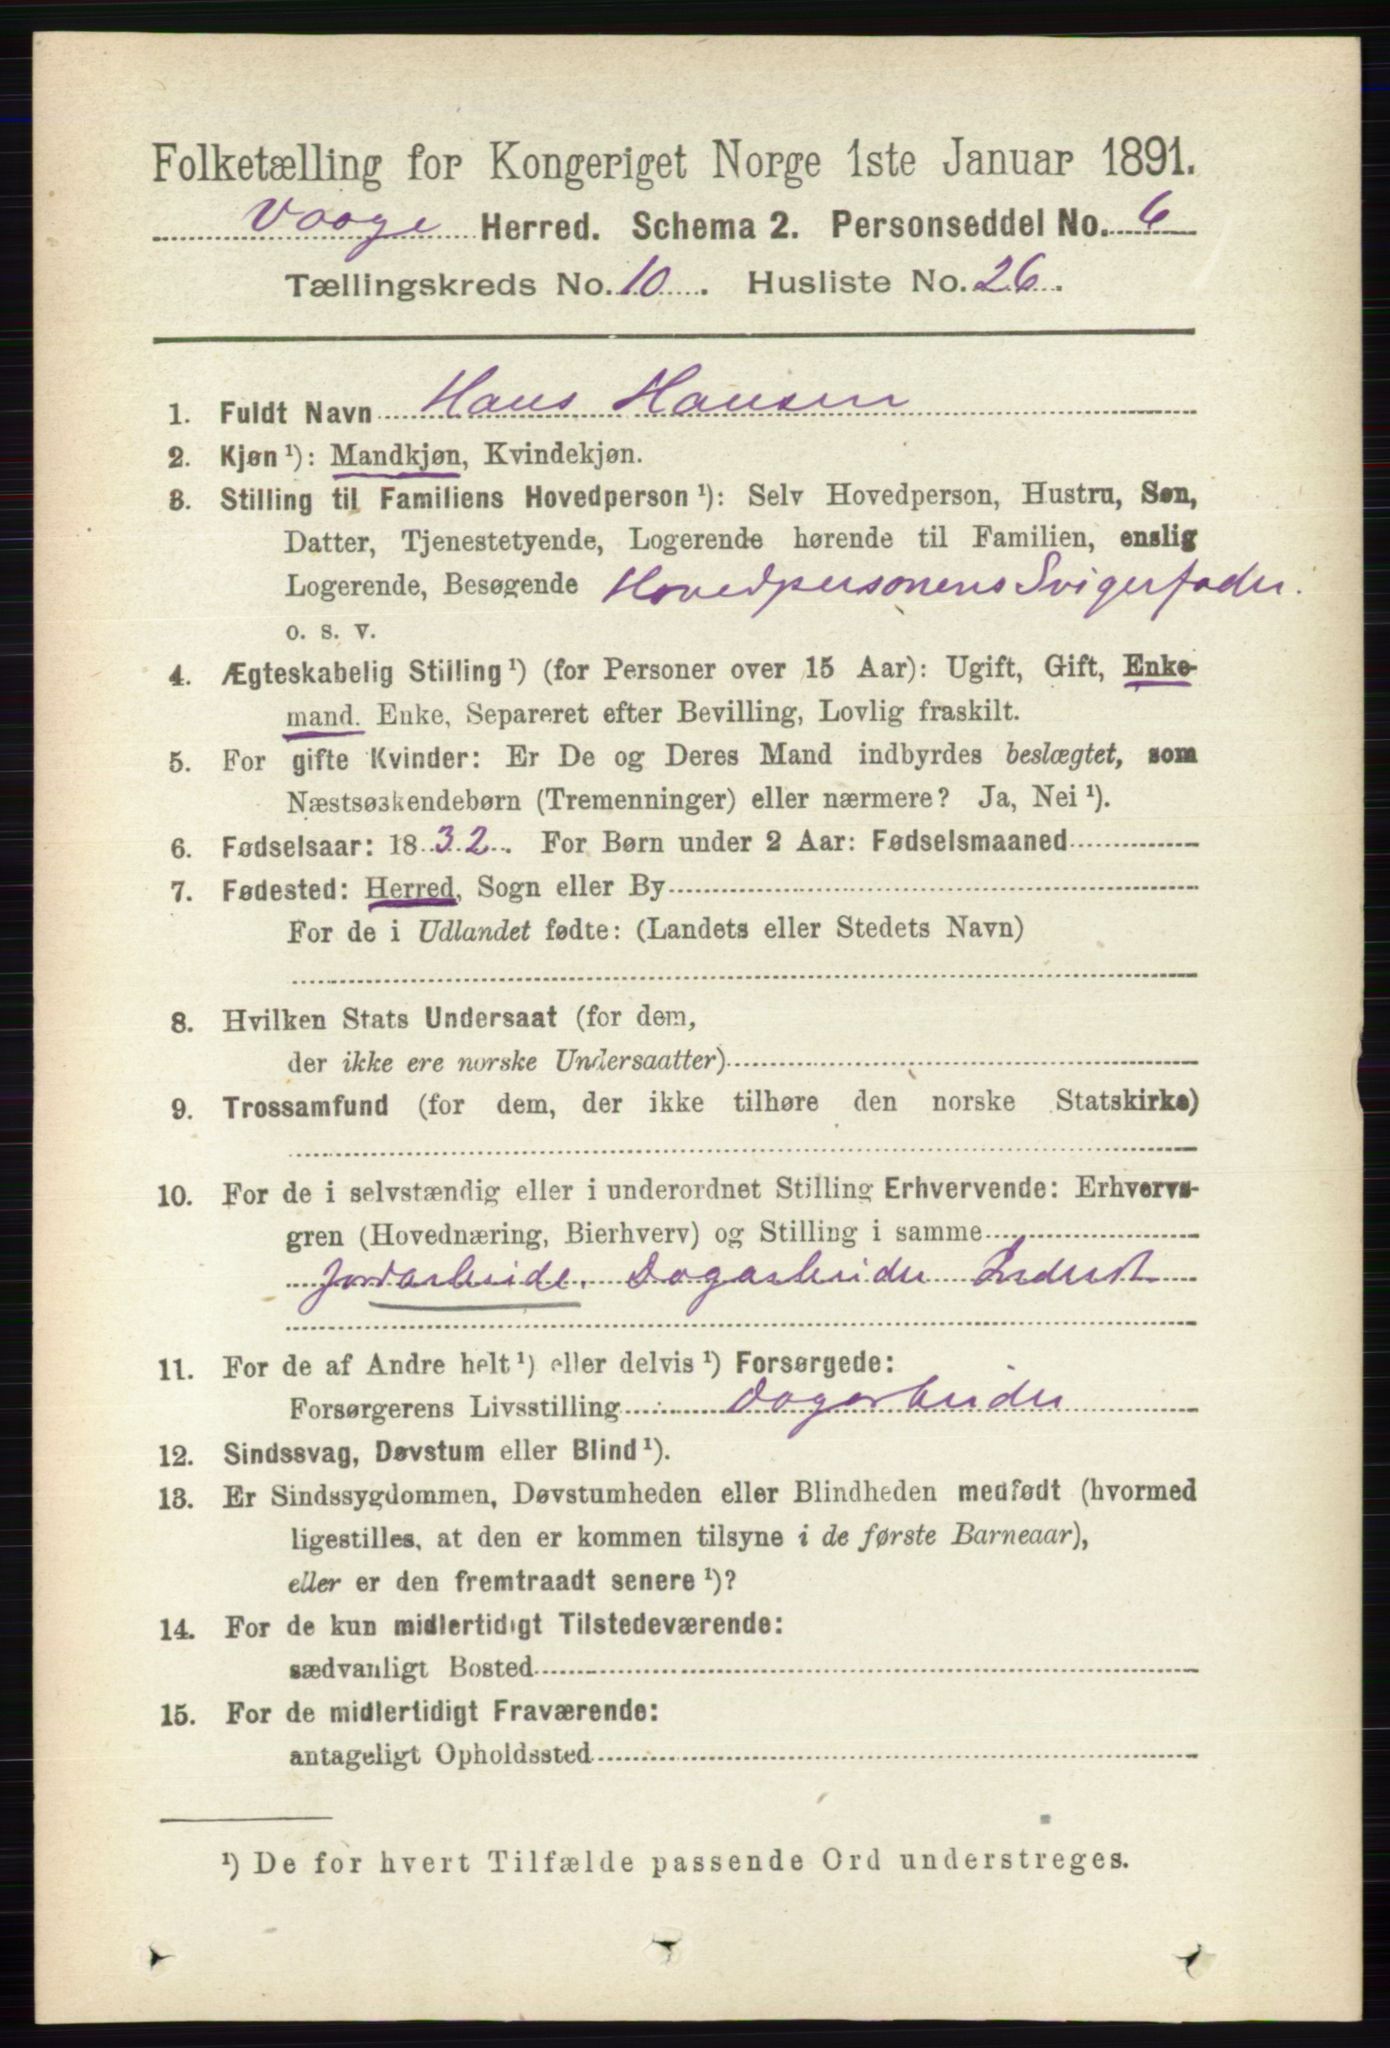 Folketælling for Kongeriget Norge 1ste Januar 1891.
Vaage Herred. Schema 2. Personseddel No. 6
Tællingskreds No. 10. Husliste No. 26.
1. Fuldt Navn Hans Hansen
2. Kjøn ¹): Mandkjøn, Kvindekjøn.
3. Stilling til Familiens Hovedperson ¹): Selv Hovedperson, Hustru, Søn,
Datter, Tjenestetyende, Logerende hørende til Familien, enslig
Logerende, Besøgende Hovedpersonens Svigerfader.
o. s. v.
4. Ægteskabelig Stilling ¹) (for Personer over 15 Aar): Ugift, Gift, Enke-
mand. Enke, Separeret efter Bevilling, Lovlig fraskilt.
5. For gifte Kvinder: Er De og Deres Mand indbyrdes beslægtet, som
Næstsøskendebørn (Tremenninger) eller nærmere? Ja, Nei ¹).
6. Fødselsaar: 1832. For Børn under 2 Aar: Fødselsmaaned
7. Fødested: Herred, Sogn eller By
For de i Udlandet fødte: (Landets eller Stedets Navn)
8. Hvilken Stats Undersaat (for dem,
der ikke ere norske Undersaatter)
9. Trossamfund (for dem, der ikke tilhøre den norske Statskirke)
10. For de i selvstændig eller i underordnet Stilling Erhvervende: Erhvervs-
gren (Hovednæring, Bierhverv) og Stilling i samme
Jordarbeide. Dagarbeider Inderst
11. For de af Andre helt ¹) eller delvis ¹) Forsørgede:
Forsørgerens Livsstilling Dagarbeider
12. Sindssvag, Døvstum eller Blind ¹).
13. Er Sindssygdommen, Døvstumheden eller Blindheden medfødt (hvormed
ligestilles, at den er kommen tilsyne i de første Barneaar),
eller er den fremtraadt senere ¹)?
14. For de kun midlertidigt Tilstedeværende:
sædvanligt Bosted
15. For de midlertidigt Fraværende:
antageligt Opholdssted
¹) De for hvert Tilfælde passende Ord understreges.